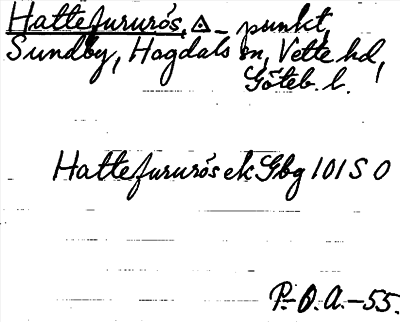 Hattefururós, △ - punkt,
Sundby, Hogdals sn, Vette hd,
Göteb. l.
Hattefururós ek Gbg 101 S O
P. O. A. -55.